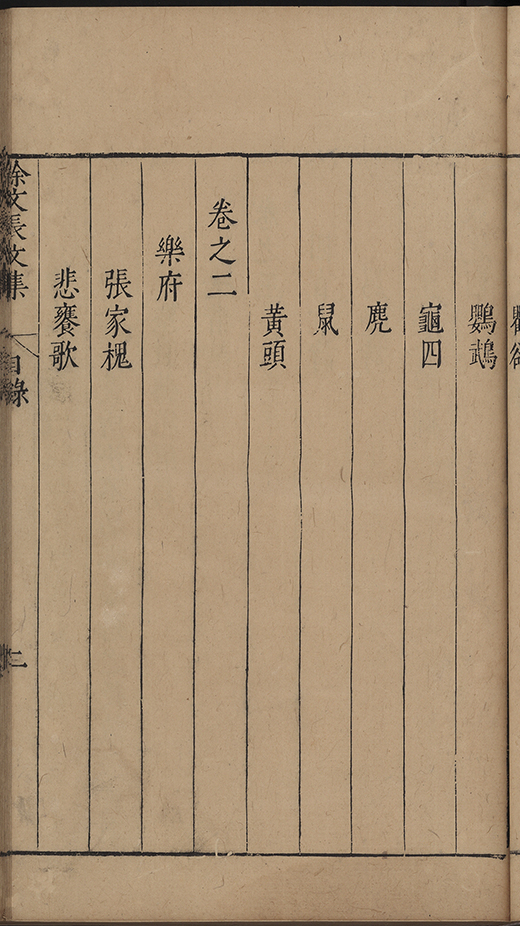 鸚鵡
龜四
麂
鼠
黃頭
卷之二
樂府
張家槐
悲饔歌
徐文長文集
目錄
二